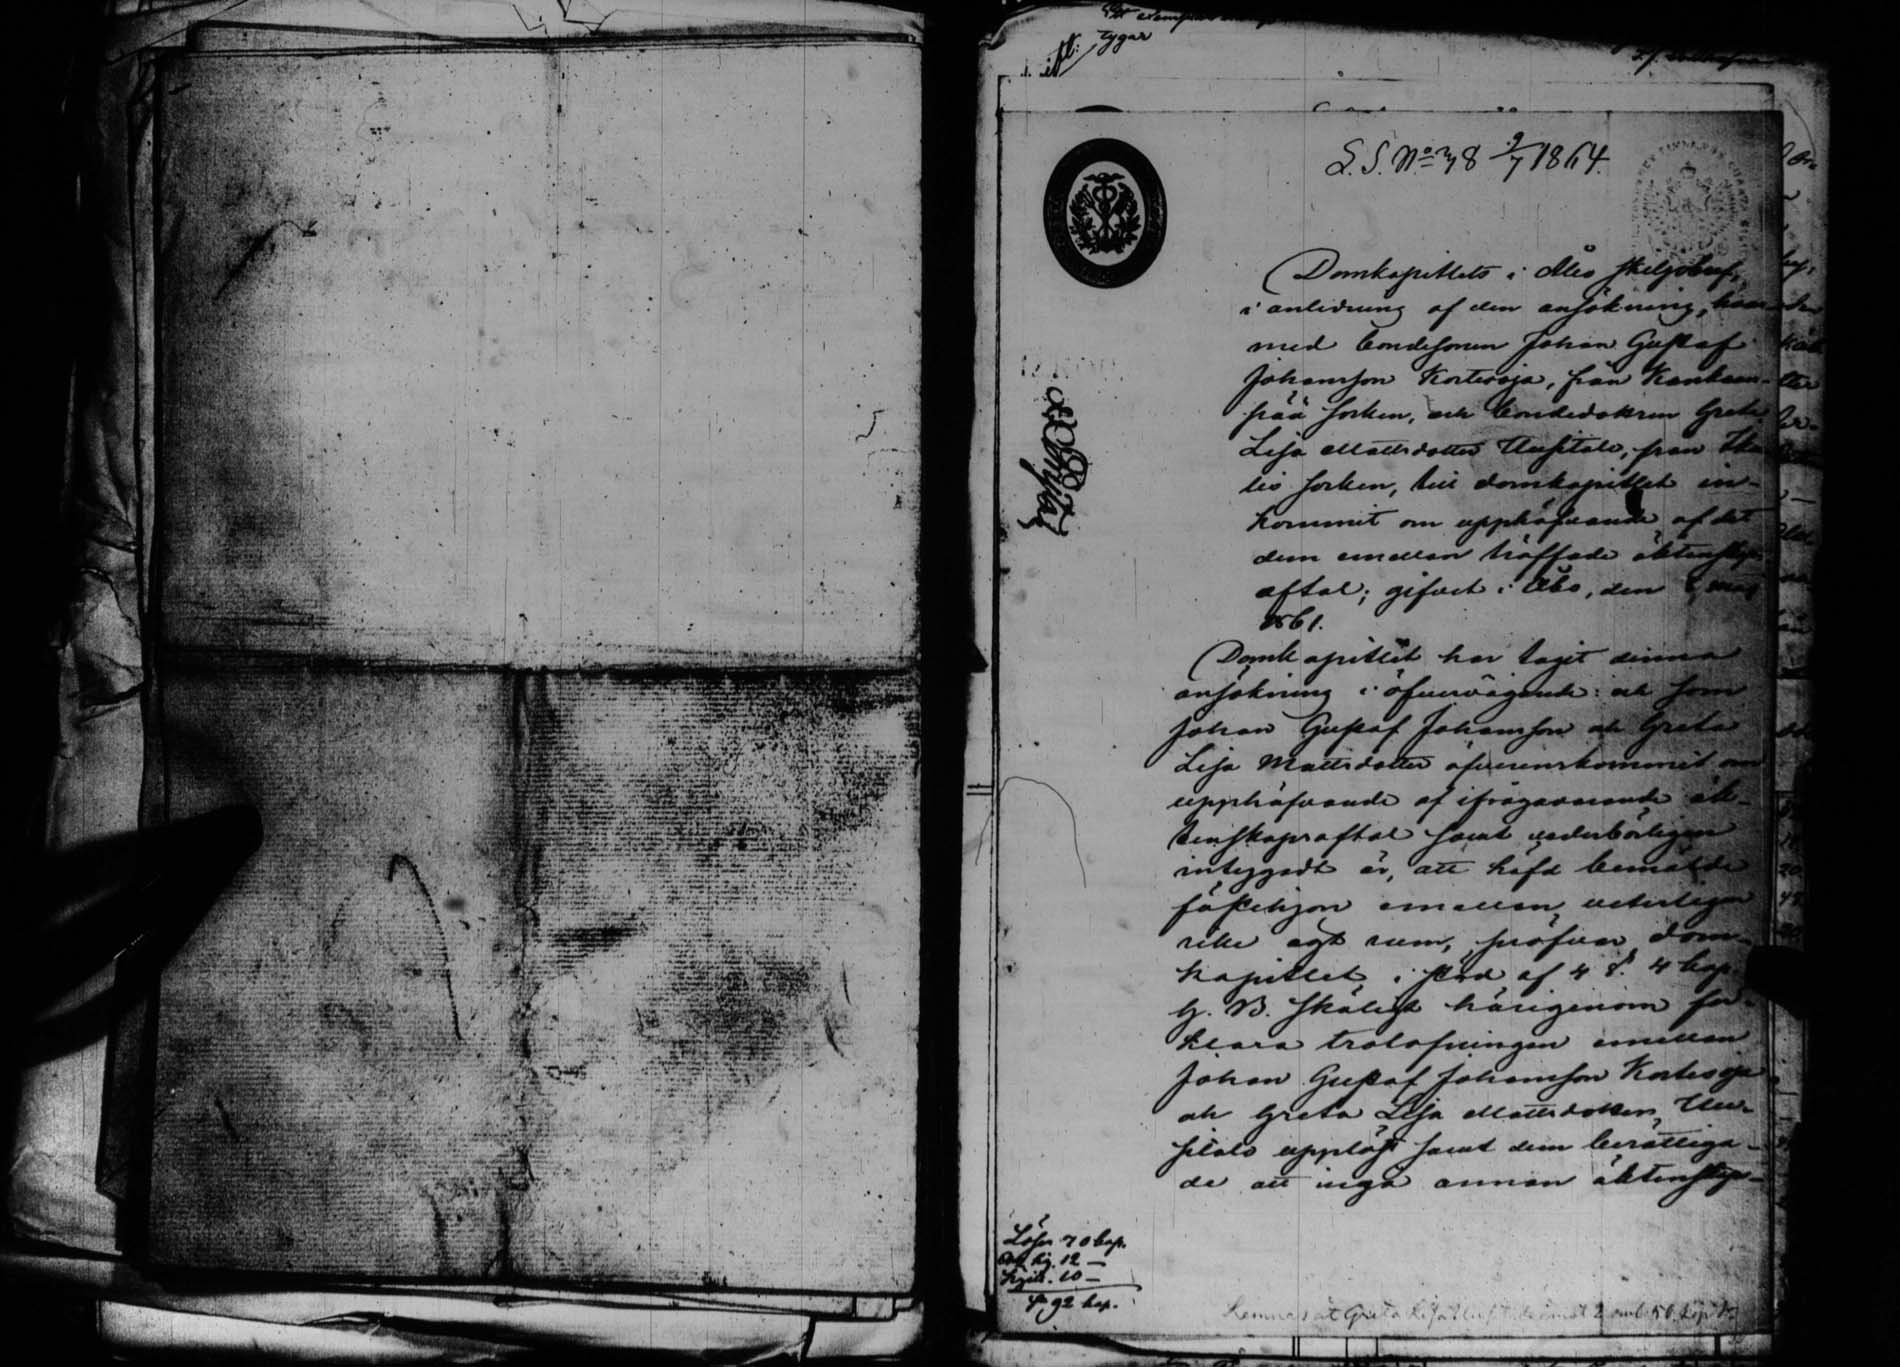 L. S. No 38 9/7 1864.
Domkapitlets i Åbo skiljobref,
i anledning af den ansökning, hvar-
med bondesonen Johan Gustaf
Johansson Kortesoja, från Kankaan-
pää socken, och bondedottren Greta
Lisa Mattsdotter Uusitalo, från
lis socken, till domkapitlet in-
kommit om upphäfvande af det
dem emellan träffade äktenskaps
aftal; gifvet i Åbo, den maj
1861.
Domkapitlet har tagit denna
ansökning i öfvervägande: och som
Johan Gustaf Johansson och Greta
Lisa Mattsdotter öfverenskommit om
upphäfvande af ifrågavarande äk-
tenskapsaftal samt vederbörligen
intygadt är, att häfd bemälde
fästehjon emellan veterligen
icke ägt rum, pröfvar dom-
kapitlet, i stöd af 4 § 4 kap.
G. B. skäligt härigenom för-
klara trolofningen emellan
Johan Gustaf Johansson Kortesoja
och Greta Lisa Mattsdotter Uu-
sitalo upplöst samt dem berättiga-
de att ingå annan äktenskaps-
Lösen 70 kop.
12 —
10 —
S 92 kop.